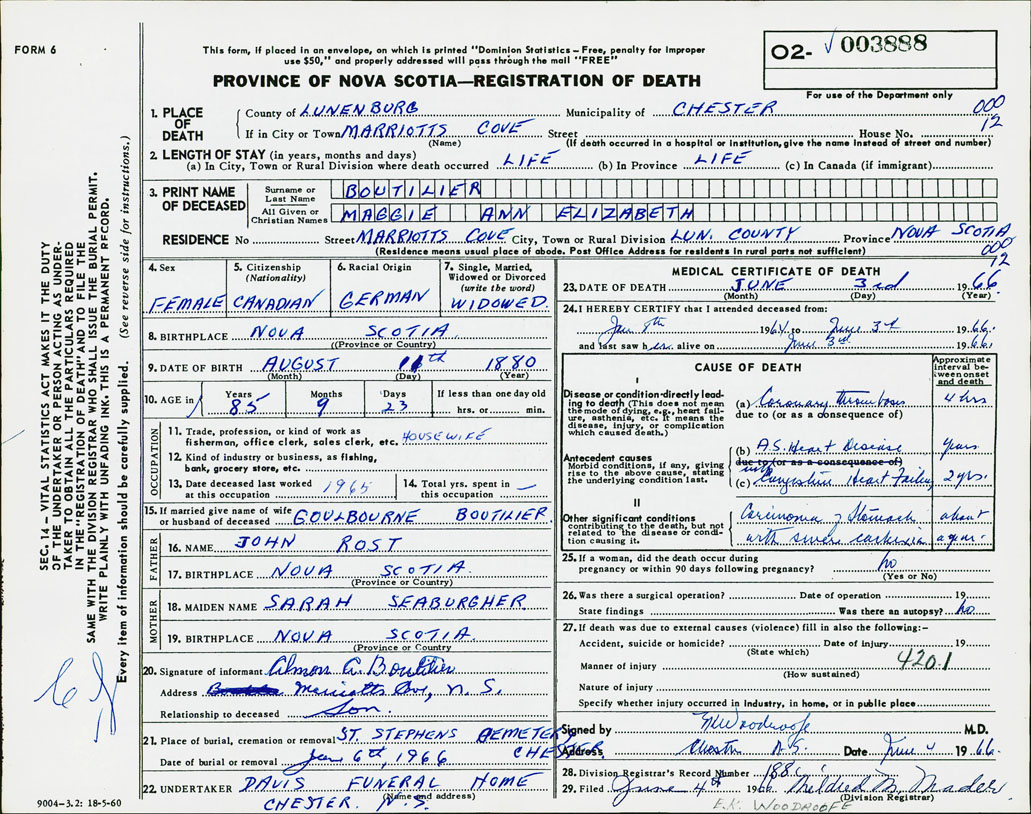 FORM 6
This form, if placed in an envelope, on which is printed "Dominion Statistics – Free, penalty for improper
use $50," and properly addressed will pass through the mail "FREE"
PROVINCE OF NOVA SCOTIA—REGISTRATION OF DEATH
O2- √ 003888
For use of the Department only
1. PLACE OF DEATH
County of LUNENBURG Municipality of CHESTER 000
If in City or Town MARRIOTTS COVE Street House No. 12
(Name) (If death occurred in a hospital or institution, give the name instead of street and number)
2. LENGTH OF STAY (in years, months and days)
(a) In City, Town or Rural Division where death occurred LIFE (b) In Province LIFE (c) In Canada (if immigrant)
3. PRINT NAME OF DECEASED
Surname or Last Name BOUTILIER
All Given or Christian Names MAGGIE ANN ELIZABETH
RESIDENCE No Street MARRIOTTS COVE City, Town or Rural Division LUN. COUNTY Province NOVA SCOTIA
(Residence means usual place of abode. Post Office Address for residents in rural parts not sufficient) 000
12
4. Sex FEMALE
5. Citizenship (Nationality) CANADIAN
6. Racial Origin GERMAN
7. Single, Married, Widowed or Divorced (write the word) WIDOWED
8. BIRTHPLACE NOVA SCOTIA
(Province or Country)
9. DATE OF BIRTH AUGUST 11th 1880
(Month) (Day) (Year)
10. AGE in Years 85 Months 9 Days 23 If less than one day old hrs. or min.
OCCUPATION
11. Trade, profession, or kind of work as
fisherman, office clerk, sales clerk, etc. HOUSEWIFE
12. Kind of industry or business, as fishing,
bank, grocery store, etc.
13. Date deceased last worked at this occupation 1965
14. Total yrs. spent in this occupation —
15. If married give name of wife
or husband of deceased GOULBOURNE BOUTILIER
FATHER
16. NAME JOHN ROST
17. BIRTHPLACE NOVA SCOTIA
(Province or Country)
MOTHER
18. MAIDEN NAME SARAH SEABURGHER
19. BIRTHPLACE NOVA SCOTIA
(Province or Country)
20. Signature of informant Almon G. Boutilier
Address Marriotts Cove, N.S.
Relationship to deceased Son.
21. Place of burial, cremation or removal ST. STEPHENS CEMETERY
CHESTER
Date of burial or removal June 6th, 1966
22. UNDERTAKER DAVIS FUNERAL HOME
(Name and address)
CHESTER. N.S.
9004-3.2: 18-5-60
MEDICAL CERTIFICATE OF DEATH
23. DATE OF DEATH JUNE 3rd 1966
(Month) (Day) (Year)
24. I HEREBY CERTIFY that I attended deceased from:
Jan 8th 1964 to June 3rd 1966
and last saw her alive on June 3rd 1966
CAUSE OF DEATH
Approximate interval between onset and death
I
Disease or condition directly leading to death (This does not mean the mode of dying, e.g., heart failure, asthenia, etc. It means the disease, injury, or complication which caused death.)
(a) Coronary thrombosis 4 hrs
due to (or as a consequence of)
Antecedent causes
Morbid conditions, if any, giving rise to the above cause, stating the underlying condition last.
(b) A.S. Heart Disease years
due to (or as a consequence of)
with
(c) Congestive Heart Failure 2 yrs.
II
Other significant conditions contributing to the death, but not related to the disease or condition causing it.
Carcinoma of Stomach about
with severe cachexia a year.
25. If a woman, did the death occur during
pregnancy or within 90 days following pregnancy? no
(Yes or No)
26. Was there a surgical operation? Date of operation 19
State findings Was there an autopsy? no
27. If death was due to external causes (violence) fill in also the following:–
Accident, suicide or homicide? Date of injury 19
(State which)
Manner of injury 420.1
(How sustained)
Nature of injury
Specify whether injury occurred in industry, in home, or in public place
Signed by Woodroofe M.D.
Address Chester N.S. Date June 4 1966
28. Division Registrar's Record Number 188
29. Filed June 4th 1966 Mildred M. Mader
(Division Registrar)
E.K. WOODROOFE
SEC. 14 – VITAL STATISTICS ACT MAKES IT THE DUTY
OF THE UNDERTAKER OR PERSON ACTING AS UNDERTAKER
TO OBTAIN ALL THE PARTICULARS REQUIRED
IN THE "REGISTRATION OF DEATH" AND TO FILE THE
SAME WITH THE DIVISION REGISTRAR WHO SHALL ISSUE THE BURIAL PERMIT.
WRITE PLAINLY WITH UNFADING INK. THIS IS A PERMANENT RECORD.
Every item of information should be carefully supplied. (See reverse side for instructions.)